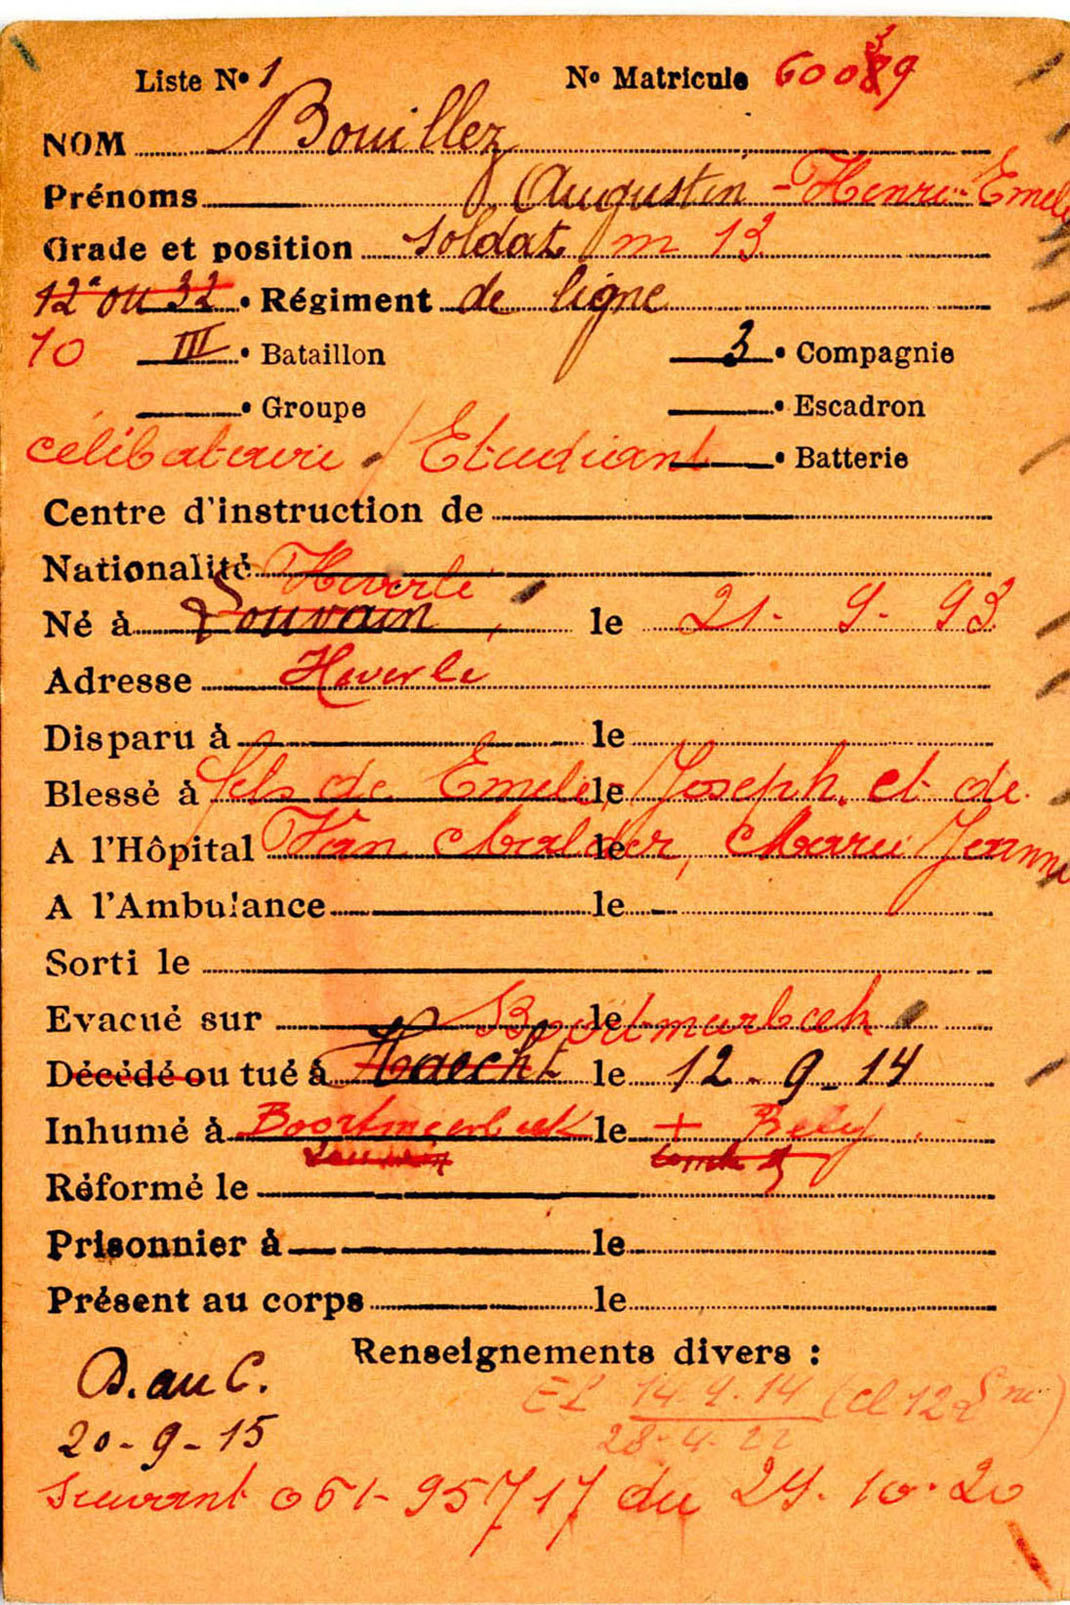 Liste No 1 No Matricule 60039
NOM Bouillez
Prénoms Augustin - Henri - Emile
Grade et position Soldat m 13
12e ou 32 e Régiment de ligne
10 III e Bataillon 3 e Compagnie
e Groupe e Escadron
célibataire / Etudiant e Batterie
Centre d'instruction de
Nationalité
Heverlé
Né à Louvain, le 21 - 9 - 93
Adresse Heverlé
Disparu à le
Blessé à fils de Emile, le Joseph. et de
A l'Hôpital Van Malder, le Marie Jeanne
A l'Ambulance le
Sorti le
Evacué sur le
Boortmeerbeek
Décédé ou tué à Haecht le 12 - 9 - 14
Inhumé à Boortmeerbeek le + Belg
Louvain tombe
Réformé le
Prisonnier à le
Présent au corps le
Renseignements divers :
D. au C.
20 - 9 - 15
EL 14.9.14
28.4.22
Suivant 061-95717 du 29. 10. 20